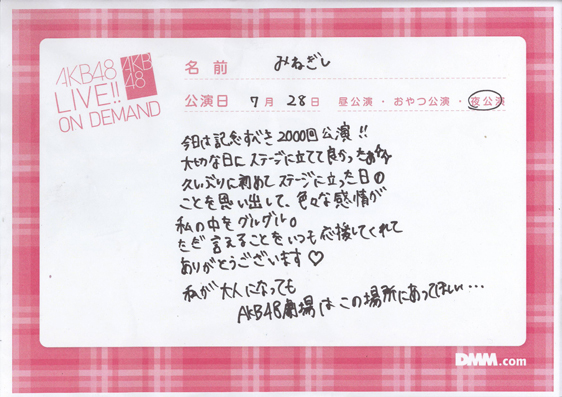 AKB48
LIVE!!
ON DEMAND
AKB
48
名前 みねぎし
公演日 7月28日 昼公演・おやつ公演・夜公演
今日は記念すべき2000回公演!!
大切な日にステージに立てて良かったぁ
久しぶりに初めてステージに立った日の
ことを思い出して、色々な感情が
私の中をグルグル。
ただ言えることをいつも応援してくれて
ありがとうございます♡
私が大人になっても
AKB48劇場はこの場所にあってほしい…
DMM.com